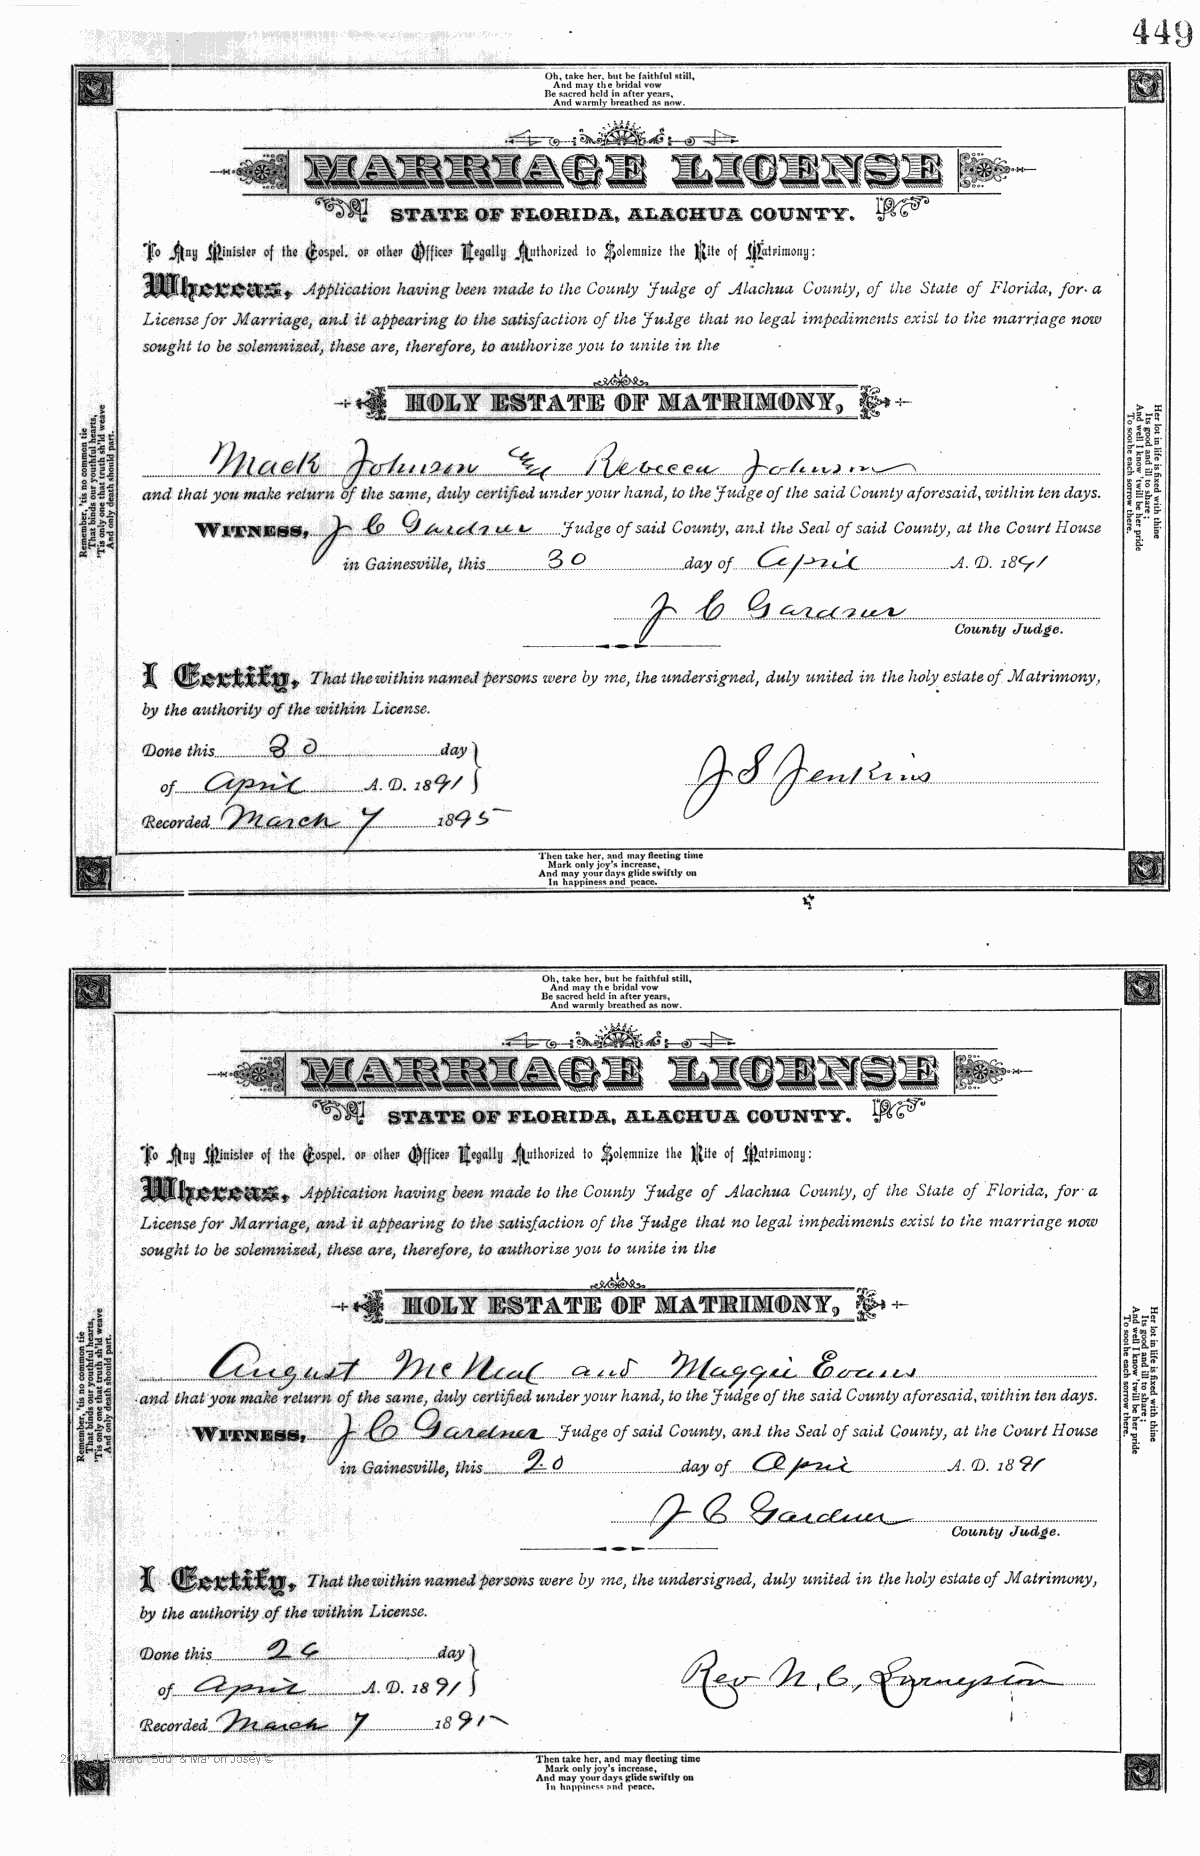 449
Oh, take her, but be faithful still,
And may the bridal vow
Be sacred held in after years,
And warmly breathed as now.
MARRIAGE LICENSE
STATE OF FLORIDA, ALACHUA COUNTY.
To Any Minister of the Gospel, or other Officer Legally Authorized to Solemnize the Rite of Matrimony:
Whereas, Application having been made to the County Judge of Alachua County, of the State of Florida, for a
License for Marriage, and it appearing to the satisfaction of the Judge that no legal impediments exist to the marriage now
sought to be solemnized, these are, therefore, to authorize you to unite in the
HOLY ESTATE OF MATRIMONY,
Mack Johnson and Rebecca Johnson
and that you make return of the same, duly certified under your hand, to the Judge of the said County aforesaid, within ten days.
WITNESS, J C Gardner Judge of said County, and the Seal of said County, at the Court House
in Gainesville, this 30 day of April A. D. 1891
J C Gardner
County Judge.
I Certify, That the within named persons were by me, the undersigned, duly united in the holy estate of Matrimony,
by the authority of the within License.
Done this 30 day
of April A. D. 1891
J S Jenkins
Recorded March 7 1895
Remember, 'tis no common tie
That binds our youthful hearts,
'Tis only one that truth sh'ld weave
And only death should part.
Her lot in life is fixed with thine
Its good and ill to share;
And well I know 'twill be her pride
To soothe each sorrow there.
Then take her, and may fleeting time
Mark only joy's increase,
And may your days glide swiftly on
In happiness and peace.
Oh, take her, but be faithful still,
And may the bridal vow
Be sacred held in after years,
And warmly breathed as now.
MARRIAGE LICENSE
STATE OF FLORIDA, ALACHUA COUNTY.
To Any Minister of the Gospel, or other Officer Legally Authorized to Solemnize the Rite of Matrimony:
Whereas, Application having been made to the County Judge of Alachua County, of the State of Florida, for a
License for Marriage, and it appearing to the satisfaction of the Judge that no legal impediments exist to the marriage now
sought to be solemnized, these are, therefore, to authorize you to unite in the
HOLY ESTATE OF MATRIMONY,
August McNeal and Maggie Evans
and that you make return of the same, duly certified under your hand, to the Judge of the said County aforesaid, within ten days.
WITNESS, J C Gardner Judge of said County, and the Seal of said County, at the Court House
in Gainesville, this 20 day of April A. D. 1891
J C Gardner
County Judge.
I Certify, That the within named persons were by me, the undersigned, duly united in the holy estate of Matrimony,
by the authority of the within License.
Done this 26 day
of April A. D. 1891
Rev N. C.
Recorded March 7 1895
Remember, 'tis no common tie
That binds our youthful hearts,
'Tis only one that truth sh'ld weave
And only death should part.
Her lot in life is fixed with thine
Its good and ill to share;
And well I know 'twill be her pride
To soothe each sorrow there.
Then take her, and may fleeting time
Mark only joy's increase,
And may your days glide swiftly on
In happiness and peace.
Josey ©